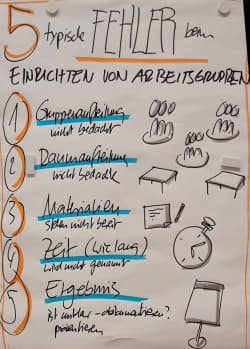 5 typische FEHLER beim
EINRICHTEN VON ARBEITSGRUPPEN
1 Gruppenaufteilung
nicht bedacht
2 Raumaufteilung
nicht bedacht
3 Materialien
stehen nicht bereit
4 Zeit (wie lang)
wird nicht genannt
5 Ergebnis
ist unklar - dokumentieren?
präsentieren